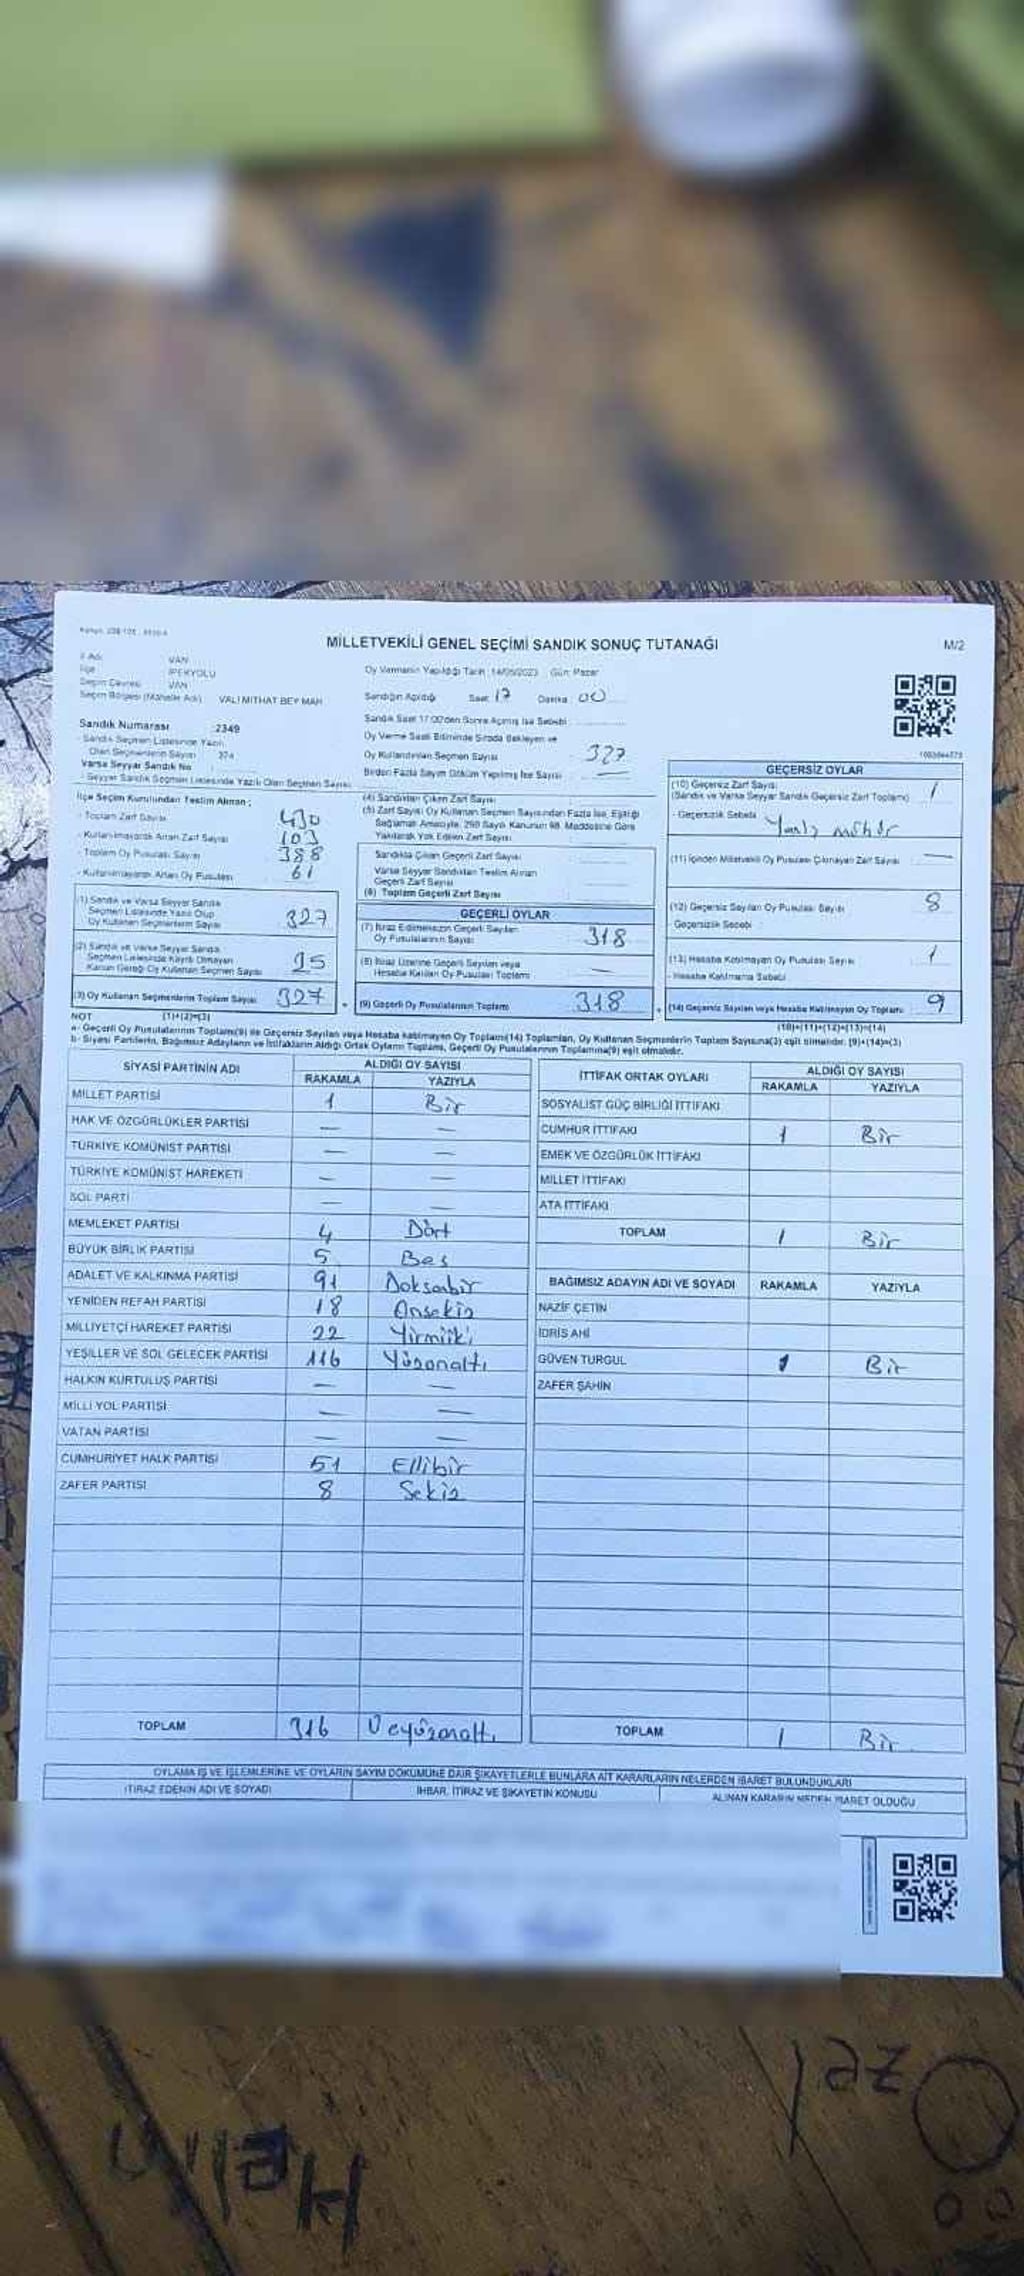 MİLLETVEKİLİ GENEL SEÇİMİ SANDIK SONUÇ TUTANAĞI
M/2
VAN
İlçe İPEKYOLU
Seçim Çevresi VAN
Seçim Bölgesi (Mahalle Adı) VALİ MİTHAT BEY MAH
Oy Vermenin Yapıldığı Tarih :14/05/2023 Gün: Pazar
Sandığın Açıldığı Saat 17 Dakika 00
Sandık Saat 17:00'den Sonra Açılmış İse Sebebi
Oy Verme Saati Bitiminde Sırada Bekleyen ve
Oy Kullandırılan Seçmen Sayısı 327
Birden Fazla Sayım Döküm Yapılmış İse Sayısı —
Sandık Numarası :2349
Sandık Seçmen Listesinde Yazılı
Olan Seçmenlerin Sayısı 374
Varsa Seyyar Sandık No
- Seyyar Sandık Seçmen Listesinde Yazılı Olan Seçmen Sayısı
İlçe Seçim Kurulundan Teslim Alınan ;
- Toplam Zarf Sayısı 430
- Kullanılmayarak Artan Zarf Sayısı 103
- Toplam Oy Pusulası Sayısı 388
- Kullanılmayarak Artan Oy Pusulası 61
(1) Sandık ve Varsa Seyyar Sandık
Seçmen Listesinde Yazılı Olup
Oy Kullanan Seçmenlerin Sayısı 327
(2) Sandık ve Varsa Seyyar Sandık
Seçmen Listesinde Kayıtlı Olmayan
Kanun Gereği Oy Kullanan Seçmen Sayısı
(3) Oy Kullanan Seçmenlerin Toplam Sayısı 327
(1)+(2)=(3)
(4) Sandıktan Çıkan Zarf Sayısı
(5) Zarf Sayısı Oy Kullanan Seçmen Sayısından Fazla İse, Eşitliği
Sağlamak Amacıyla, 298 Sayılı Kanunun 98. Maddesine Göre
Yakılarak Yok Edilen Zarf Sayısı
Sandıkta Çıkan Geçerli Zarf Sayısı
Varsa Seyyar Sandıktan Teslim Alınan
Geçerli Zarf Sayısı
(6) Toplam Geçerli Zarf Sayısı
GEÇERLİ OYLAR
(7) İtiraz Edilmeksizin Geçerli Sayılan
Oy Pusulalarının Sayısı 318
(8) İtiraz Üzerine Geçerli Sayılan veya
Hesaba Katılan Oy Pusulası Toplamı —
(9) Geçerli Oy Pusulalarının Toplamı 318
GEÇERSİZ OYLAR
(10) Geçersiz Zarf Sayısı
(Sandık ve Varsa Seyyar Sandık Geçersiz Zarf Toplamı) 1
- Geçersizlik Sebebi
(11) İçinden Milletvekili Oy Pusulası Çıkmayan Zarf Sayısı —
(12) Geçersiz Sayılan Oy Pusulası Sayısı 8
Geçersizlik Sebebi
(13) Hesaba Katılmayan Oy Pusulası Sayısı 1
- Hesaba Katılmama Sebebi
(14) Geçersiz Sayılan veya Hesaba Katılmayan Oy Toplamı 9
(10)+(11)+(12)+(13)=(14)
NOT
a- Geçerli Oy Pusulalarının Toplamı(9) ile Geçersiz Sayılan veya Hesaba katılmayan Oy Toplamı(14) Toplamları, Oy Kullanan Seçmenlerin Toplam Sayısına(3) eşit olmalıdır. (9)+(14)=(3)
b- Siyasi Partilerin, Bağımsız Adayların ve İttifakların Aldığı Ortak Oyların Toplamı, Geçerli Oy Pusulalarının Toplamına(9) eşit olmalıdır.
SİYASİ PARTİNİN ADI ALDIĞI OY SAYISI
RAKAMLA YAZIYLA
MİLLET PARTİSİ 1 Bir
HAK VE ÖZGÜRLÜKLER PARTİSİ — —
TÜRKİYE KOMÜNİST PARTİSİ — —
TÜRKİYE KOMÜNİST HAREKETİ — —
SOL PARTİ — —
MEMLEKET PARTİSİ 4 Dört
BÜYÜK BİRLİK PARTİSİ 5 Beş
ADALET VE KALKINMA PARTİSİ 91 Doksanbir
YENİDEN REFAH PARTİSİ 18 Onsekiz
MİLLİYETÇİ HAREKET PARTİSİ 22 Yirmiiki
YEŞİLLER VE SOL GELECEK PARTİSİ 116 Yüzonaltı
HALKIN KURTULUŞ PARTİSİ — —
MİLLİ YOL PARTİSİ — —
VATAN PARTİSİ — —
CUMHURİYET HALK PARTİSİ 51 Ellibir
ZAFER PARTİSİ 8 Sekiz
TOPLAM 316 Üçyüzonaltı
İTTİFAK ORTAK OYLARI ALDIĞI OY SAYISI
RAKAMLA YAZIYLA
SOSYALİST GÜÇ BİRLİĞİ İTTİFAKI
CUMHUR İTTİFAKI 1 Bir
EMEK VE ÖZGÜRLÜK İTTİFAKI
MİLLET İTTİFAKI
ATA İTTİFAKI
TOPLAM 1 Bir
BAĞIMSIZ ADAYIN ADI VE SOYADI RAKAMLA YAZIYLA
NAZİF ÇETİN
İDRİS AHİ
GÜVEN TURGUL 1 Bir
ZAFER ŞAHİN
TOPLAM 1 Bir
OYLAMA İŞ VE İŞLEMLERİNE VE OYLARIN SAYIM DÖKÜMÜNE DAİR ŞİKAYETLERLE BUNLARA AİT KARARLARIN NELERDEN İBARET BULUNDUKLARI
İTİRAZ EDENİN ADI VE SOYADI İHBAR, İTİRAZ VE ŞİKAYETİN KONUSU ALINAN KARARIN NEDEN İBARET OLDUĞU
Helin